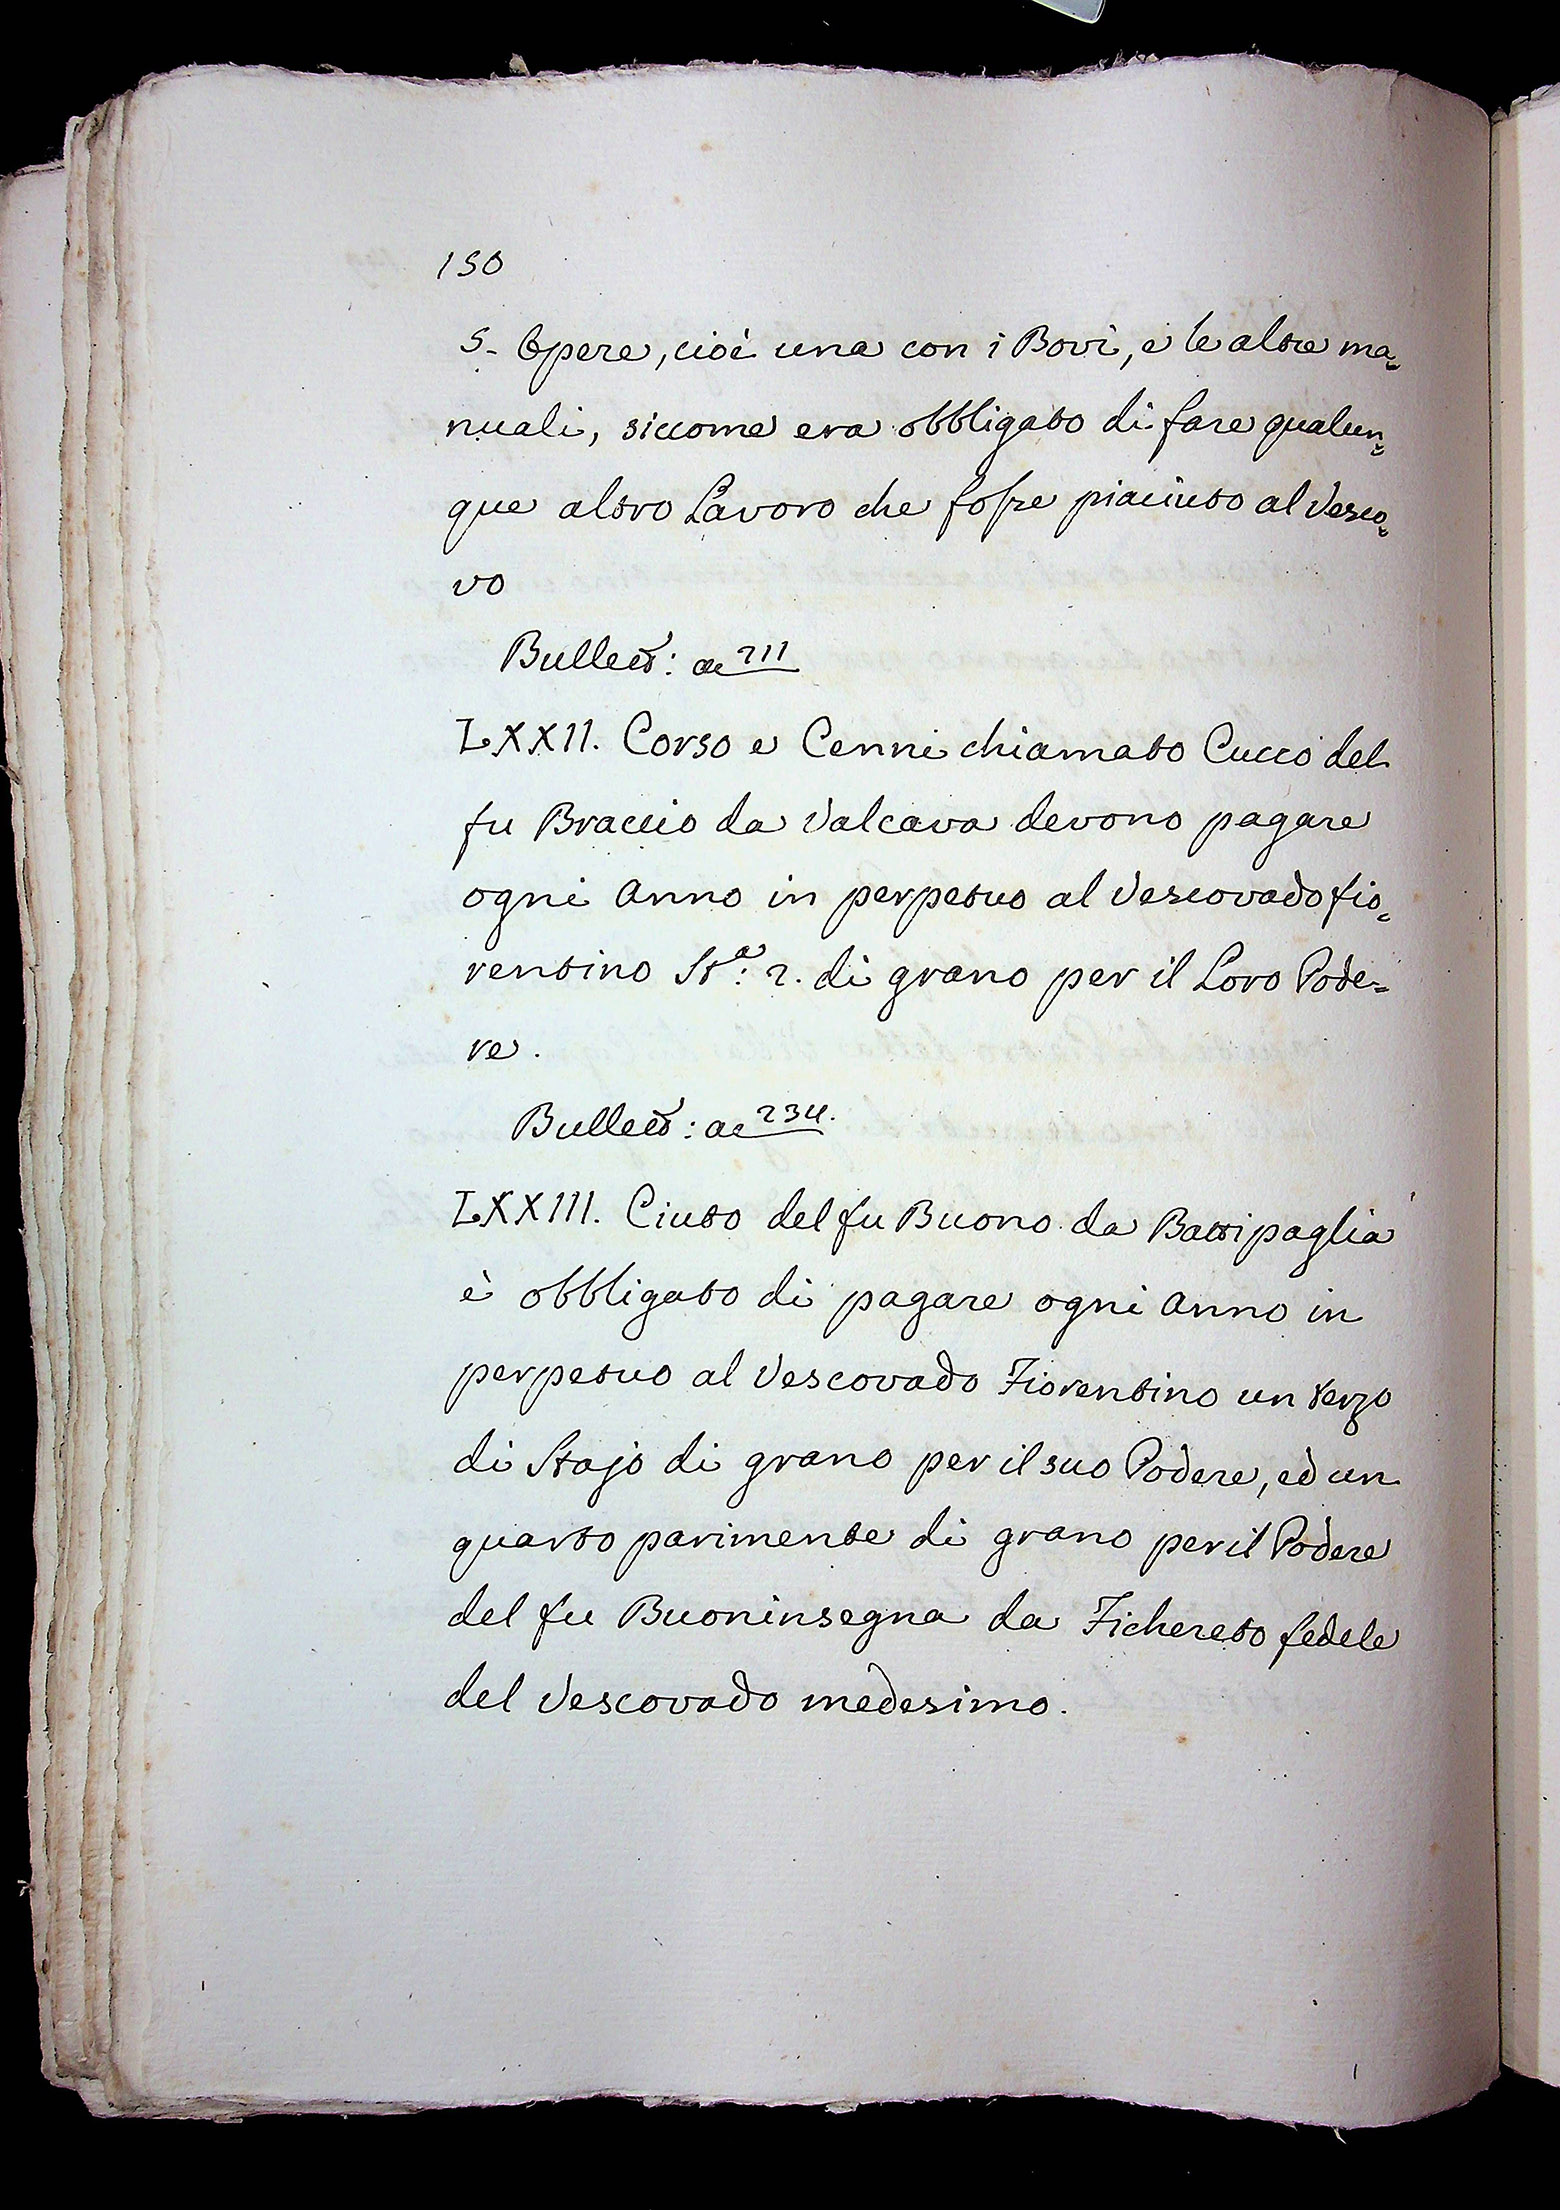 150
5. Opere, cioè una con i Bovi, e le altre ma=
nuali, siccome era obbligato di fare qualun=
que altro Lavoro che fosse piaciuto al Vesco=
vo
Bullett: ac 211
LXXII. Corso e Cenni chiamato Cucco del
fu Braccio da Valcava devono pagare
ogni Anno in perpetuo al Vescovado fio=
rentino Sta: 2. di grano per il Loro Pode=
re.
Bullett: ac 234.
LXXIII. Ciuto del fu Buono da Battipaglia
è obbligato di pagare ogni Anno in
perpetuo al Vescovado Fiorentino un terzo
di Stajo di grano per il suo Podere, ed un
quarto parimente di grano per il Podere
del fu Buoninsegna da Fichereto fedele
del Vescovado medesimo.